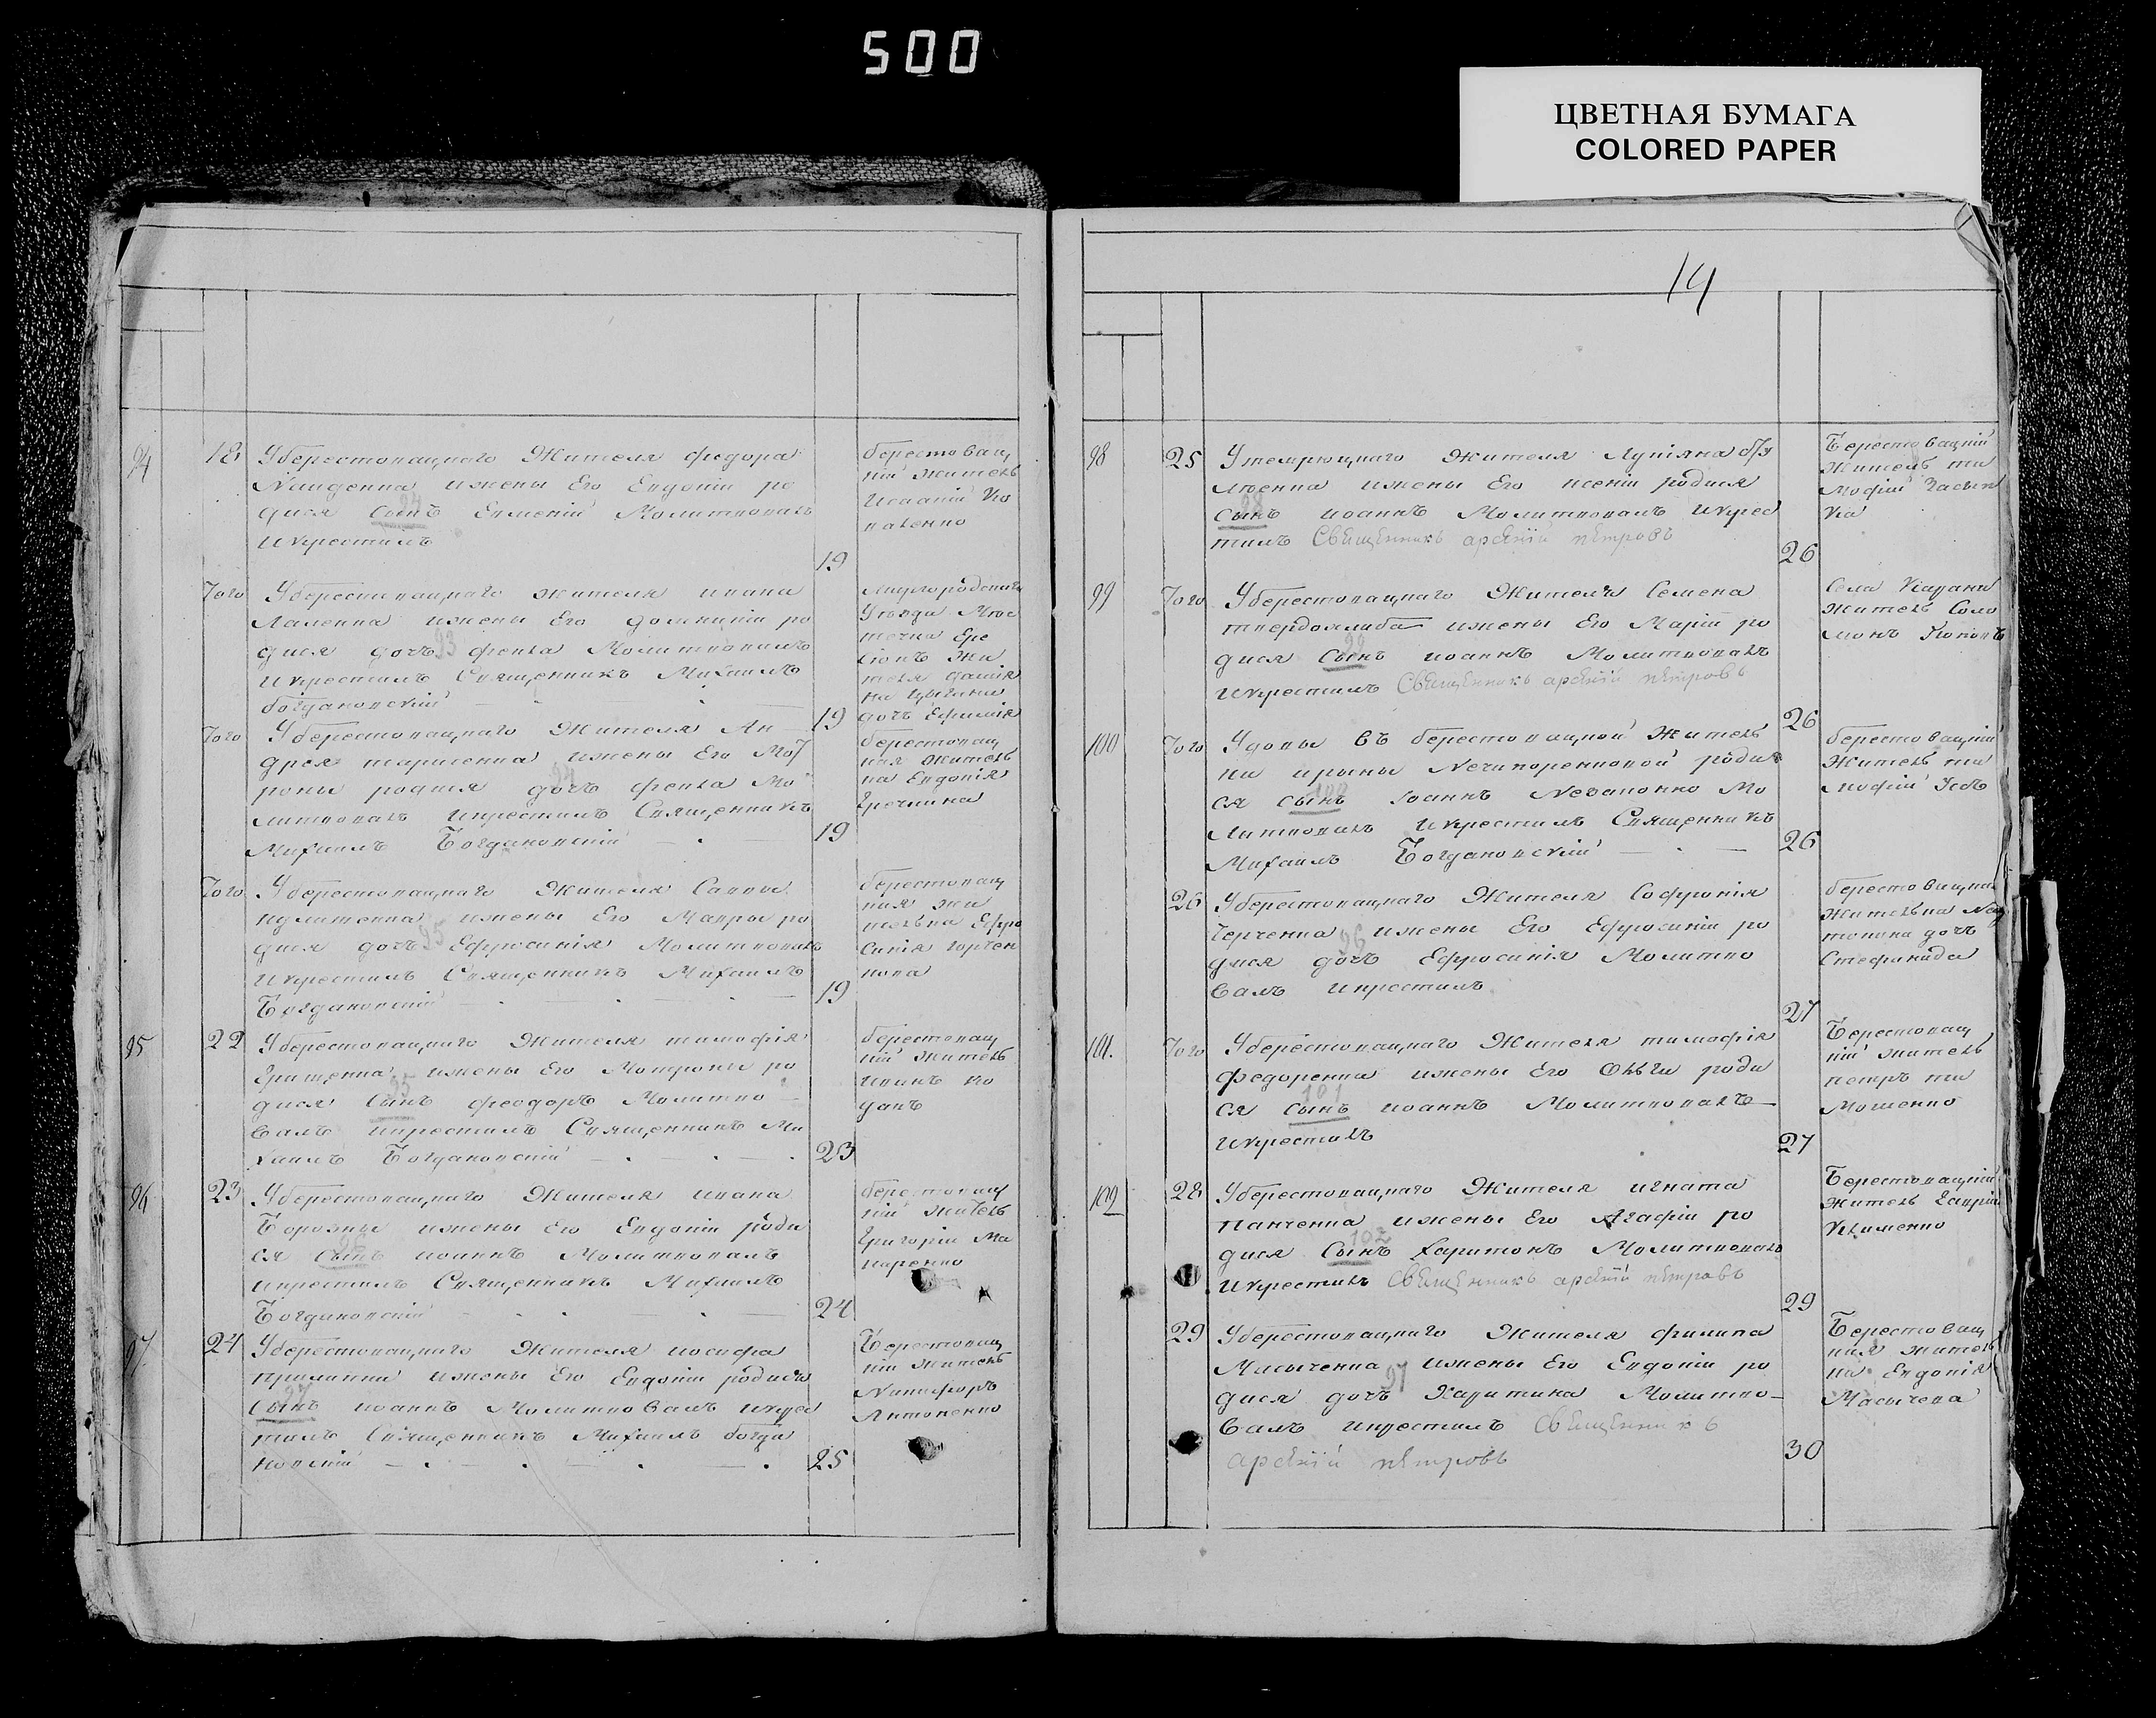 500
ЦВЕТНАЯ БУМАГА
COLORED PAPER
94 18 Уберестовацкаго Жителя федора
Найденка ижены Его Евдокіи ро
дися сынъ Евменій Молитвовалъ
икрестилъ
19
берестовац
кій житель
Ко
валенко
Того Уберестовацкаго жителя ивана
ижены Его домникіи ро
дися дочъ 93 фекла Молитвовалъ
икрестилъ Священникъ Михаилъ
богдановскій
19
миргородскаго
Уезда Мѣс
течка Ере
сіокъ жи
теля
на Цыгана
дочъ Ефимія
Того Уберестовацкаго Жителя Ан
дрея ижены Его Мот
роны родися дочъ 94 фекла Мо
литвовалъ икрестилъ Священникъ
Михаилъ Богдановскій
19
берестовац
кая житель
ка Евдокія
Гречкина
Того Уберестовацкаго Жителя Саввы
ижены Его Мавры ро
дися дочъ 95 Ефросинія Молитвовалъ
икрестилъ Священникъ Михаилъ
Богдановскій
19
берестовац
кая жи
телька Ефро
синія
95 22 Уберестовацкаго Жителя тимофія
Грищенка ижены Его Мотроны ро
дися сынъ 95 феодоръ Молитво
валъ икрестилъ Священникъ Ми
хаилъ Богдановскій
23
берестовац
кій житель
иванъ Ко
цанъ
96 23 Уберестовацкаго Жителя ивана
Борозны ижены Его Евдокіи роди
ся сынъ иоаннъ Молитвовалъ
икрестилъ Священникъ Михаилъ
Богдановскій
24
берестовац
кій житель
Григорій Ма
каренко
97 24 Уберестовацкаго Жителя иосифа
ижены Его Евдокіи родися
сынъ 97 иоаннъ Молитвовалъ икрес
тилъ Священникъ Михаилъ богда
новскій
25
Берестовац
кій житель
Никифоръ
Антоненко
14
98 25 Утемрюцкаго жителя Лукіяна
ижены Его ксеніи родися
сынъ 98 иоаннъ Молитвовалъ икрес
тилъ Свещенникъ арсеній петровъ
26
Берестовацкій
житель ти
мофій
99 Того Уберестовацкаго Жителя Семена
твердохлиба ижены Его Маріи ро
дися сынъ 99 иоаннъ Молитвовалъ
икрестилъ Свещенникъ арсеній петровъ
26
Села
житель Соло
монъ
100 Того Удовы въ берестовацкой житель
ки ирыны Нечипоренковой роди
ся сынъ 100 Іоаннъ Мо
литвовалъ икрестилъ Священникъ
Михаилъ Богдановскій
26
берестовацкій
житель ти
мофій Усъ
26 Уберестовацкаго Жителя Софронія
Черченка ижены Его Ефросиніи ро
дися дочъ 96 Ефросинія Молитво
валъ икрестилъ
27
берестовацкая
жителька
дочъ
Стефанида
101. Того Уберестовацкаго Жителя тимофія
Федоренка ижены Его Ольги роди
ся сынъ 101 иоаннъ Молитвовалъ
икрестилъ
27
Берестовац
кій житель
петръ ти
мошенко
102 28 Уберестовацкаго Жителя игната
панченка ижены Его Агафіи ро
дися Сынъ 102 харитонъ Молитвовалъ
икрестилъ Свещенникъ арсеній петровъ
29
Берестовацкій
житель Гаврій
Клименко
29 Уберестовацкаго Жителя филипа
Масыченка ижены Его Евдокіи ро
дися дочъ 97 Харитина Молитво
валъ икрестилъ Свещенникъ
арсеній петровъ
30
Берестовац
кая житель
ка Евдокія
Масычева